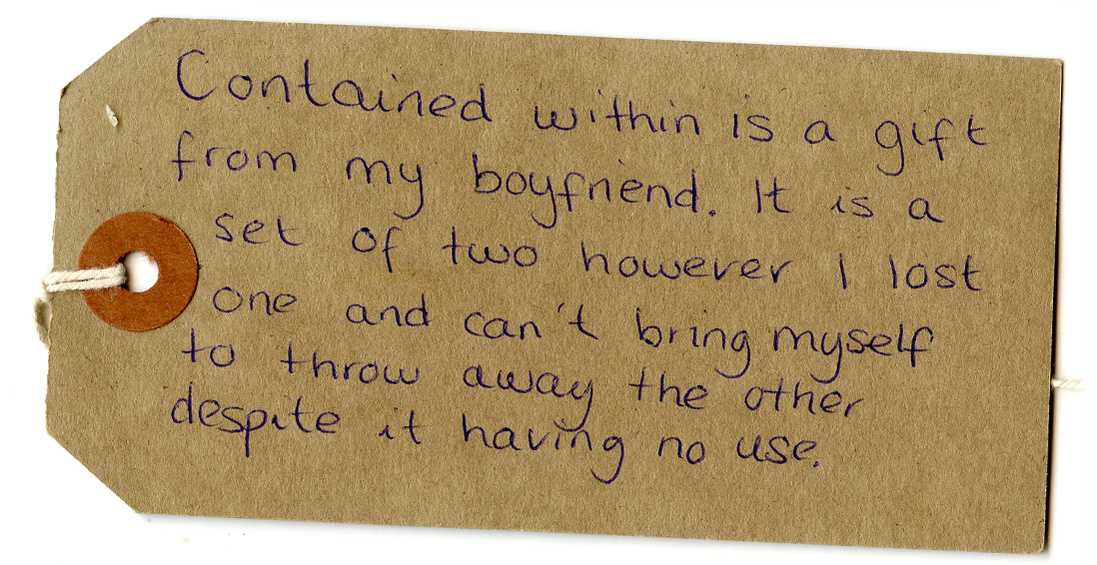 Contained within is a gift
from my boyfriend. It is a
set of two however I lost
one and can't bring myself
to throw away the other
despite it having no use.